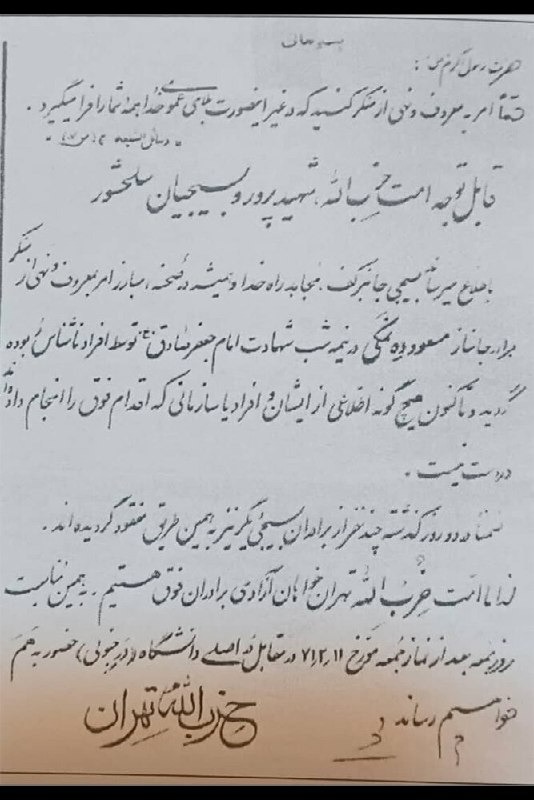 بسمه تعالی
حضرت رسول اکرم (ص) :
حتماً امر به معروف و نهی از منکر کنید که در غیر اینصورت بلای عمومی خدا همه شما را فرا میگیرد .
قابل توجه امت حزب الله ، شهید پرور و بسیجیان سلحشور
باطلاع میرساند بسیجی جانبرکف ، مجاهد راه خدا و همیشه در صحنه ، مبارز امر بمعروف و نهی از منکر
برادر جانباز مسعود ده نمکی در نیمه شب شهادت امام جعفر صادق (ع) توسط افراد ناشناس ربوده
گردید و تاکنون هیچ گونه اطلاعی از ایشان و افراد یا سازمانی که اقدام فوق را انجام داده اند
در دست نیست .
ضمناً در دو روز گذشته چند نفر از برادران بسیجی دیگر نیز به همین طریق مفقود گردیده اند .
لذا ما امت حزب الله تهران خواهان آزادی برادران فوق هستیم . به همین مناسبت
روز جمعه بعد از نماز جمعه مورخ ۷۱/۲/۱۱ در مقابل در اصلی دانشگاه (درب جنوبی) حضور به هم
خواهیم رساند
حزب الله تهران